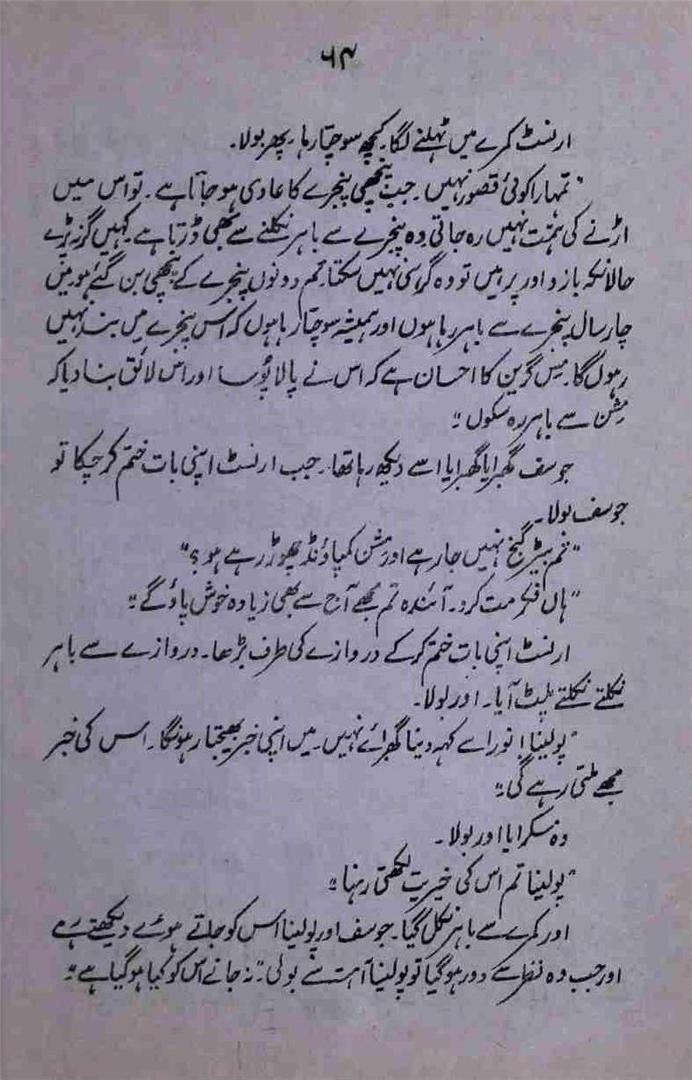 ۶۴
ارنسٹ کمرے میں ٹہلنے لگا۔ کچھ سوچتا رہا۔ پھر بولا۔
"تمہارا کوئی قصور نہیں۔ جب پنچھی پنجرے کا عادی ہو جاتا ہے۔ تو اس میں
اڑنے کی ہمت نہیں رہ جاتی وہ پنجرے سے باہر نکلنے سے بھی ڈرتا ہے۔ کہیں گر نہ پڑے
حالانکہ بازو اور پر ہیں تو وہ گر ہی نہیں سکتا۔ تم دونوں پنجرے کے پنچھی بن گئے ہو۔ میں
چار سال پنجرے سے باہر رہا ہوں اور ہمیشہ سوچتا رہا ہوں کہ اس پنجرے میں بند نہیں
رہوں گا۔ مِس گرین کا احسان ہے کہ اس نے پالا پوسا اور اس لائق بنا دیا کہ
مِشن سے باہر رہ سکوں۔"
جوسف گھبرایا گھبرایا اسے دیکھ رہا تھا۔ جب ارنسٹ اپنی بات ختم کر چکا تو
جوسف بولا۔
"تم پیڑ گنج نہیں جا رہے اور مشن کمپاؤنڈ چھوڑ رہے ہو؟"
"ہاں فکر مت کرو۔ آئندہ تم مجھے آج سے بھی زیادہ خوش پاؤ گے۔"
ارنسٹ اپنی بات ختم کر کے دروازے کی طرف بڑھا۔ دروازے سے باہر
نکلتے نکلتے پلٹ آیا۔ اور بولا۔
"پولینا! نورا سے کہہ دینا گھبرائے نہیں۔ میں اپنی خبر بھیجتا رہونگا۔ اس کی خبر
مجھے ملتی رہے گی۔"
وہ مسکرایا اور بولا۔
"پولینا تم اس کی خیریت لکھتی رہنا۔"
اور کمرے سے باہر نکل گیا۔ جوسف اور پولینا اس کو جاتے ہوئے دیکھتے رہے
اور جب وہ نظر سے دور ہو گیا تو پولینا آہستہ سے بولی۔ "نہ جانے اس کو کیا ہو گیا ہے۔"